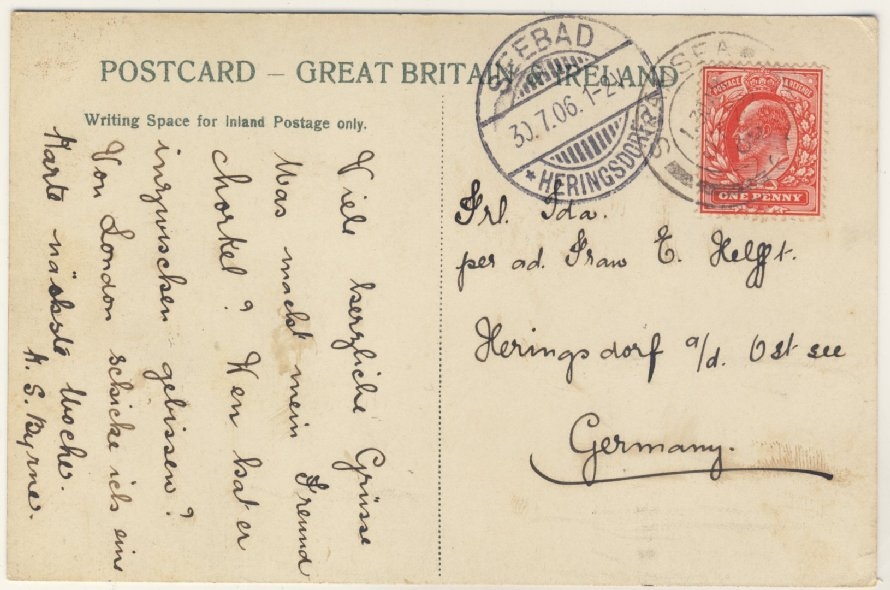 POSTCARD – GREAT BRITAIN & IRELAND
Writing Space for Inland Postage only.
Viele herzliche Grüsse
Was macht mein Freund
Chorkel? Wen hat er
inzwischen gebissen?
Von London schicke ich eine
Karte nächste Woche.
H. S. Byrne.
Frl. Ida.
per ad. Frau E. Helfft.
Heringsdorf a/d. Ostsee
Germany.
SEEBAD
30.7.06. 1-2N.
* HERINGSDORF
SEA
POSTAGE & REVENUE
ONE PENNY